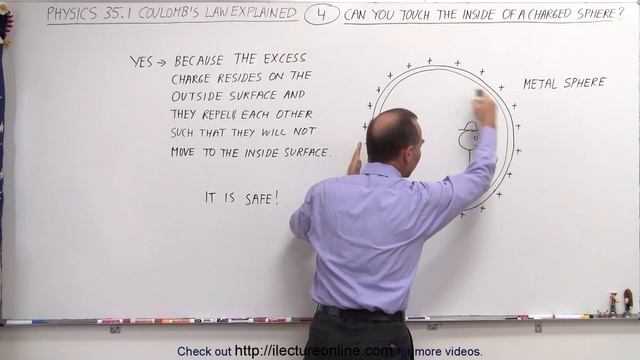 PHYSICS 35.1 COULOMB'S LAW EXPLAINED 4 CAN YOU TOUCH THE INSIDE OF A CHARGED SPHERE?
YES → BECAUSE THE EXCESS
CHARGE RESIDES ON THE
OUTSIDE SURFACE AND
THEY REPELL EACH OTHER
SUCH THAT THEY WILL NOT
MOVE TO THE INSIDE SURFACE.
IT IS SAFE!
METAL SPHERE
Check out http://ilectureonline.com for more videos.